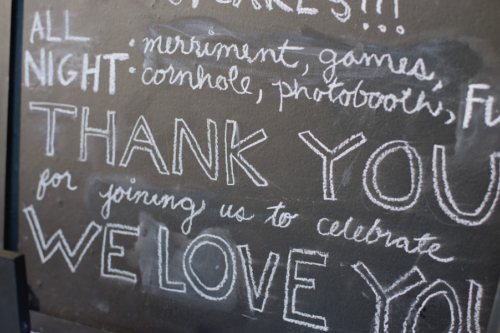 ALL NIGHT: merriment, games,
cornhole, photobooth, FU
THANK YOU
for joining us to celebrate
WE LOVE YOU